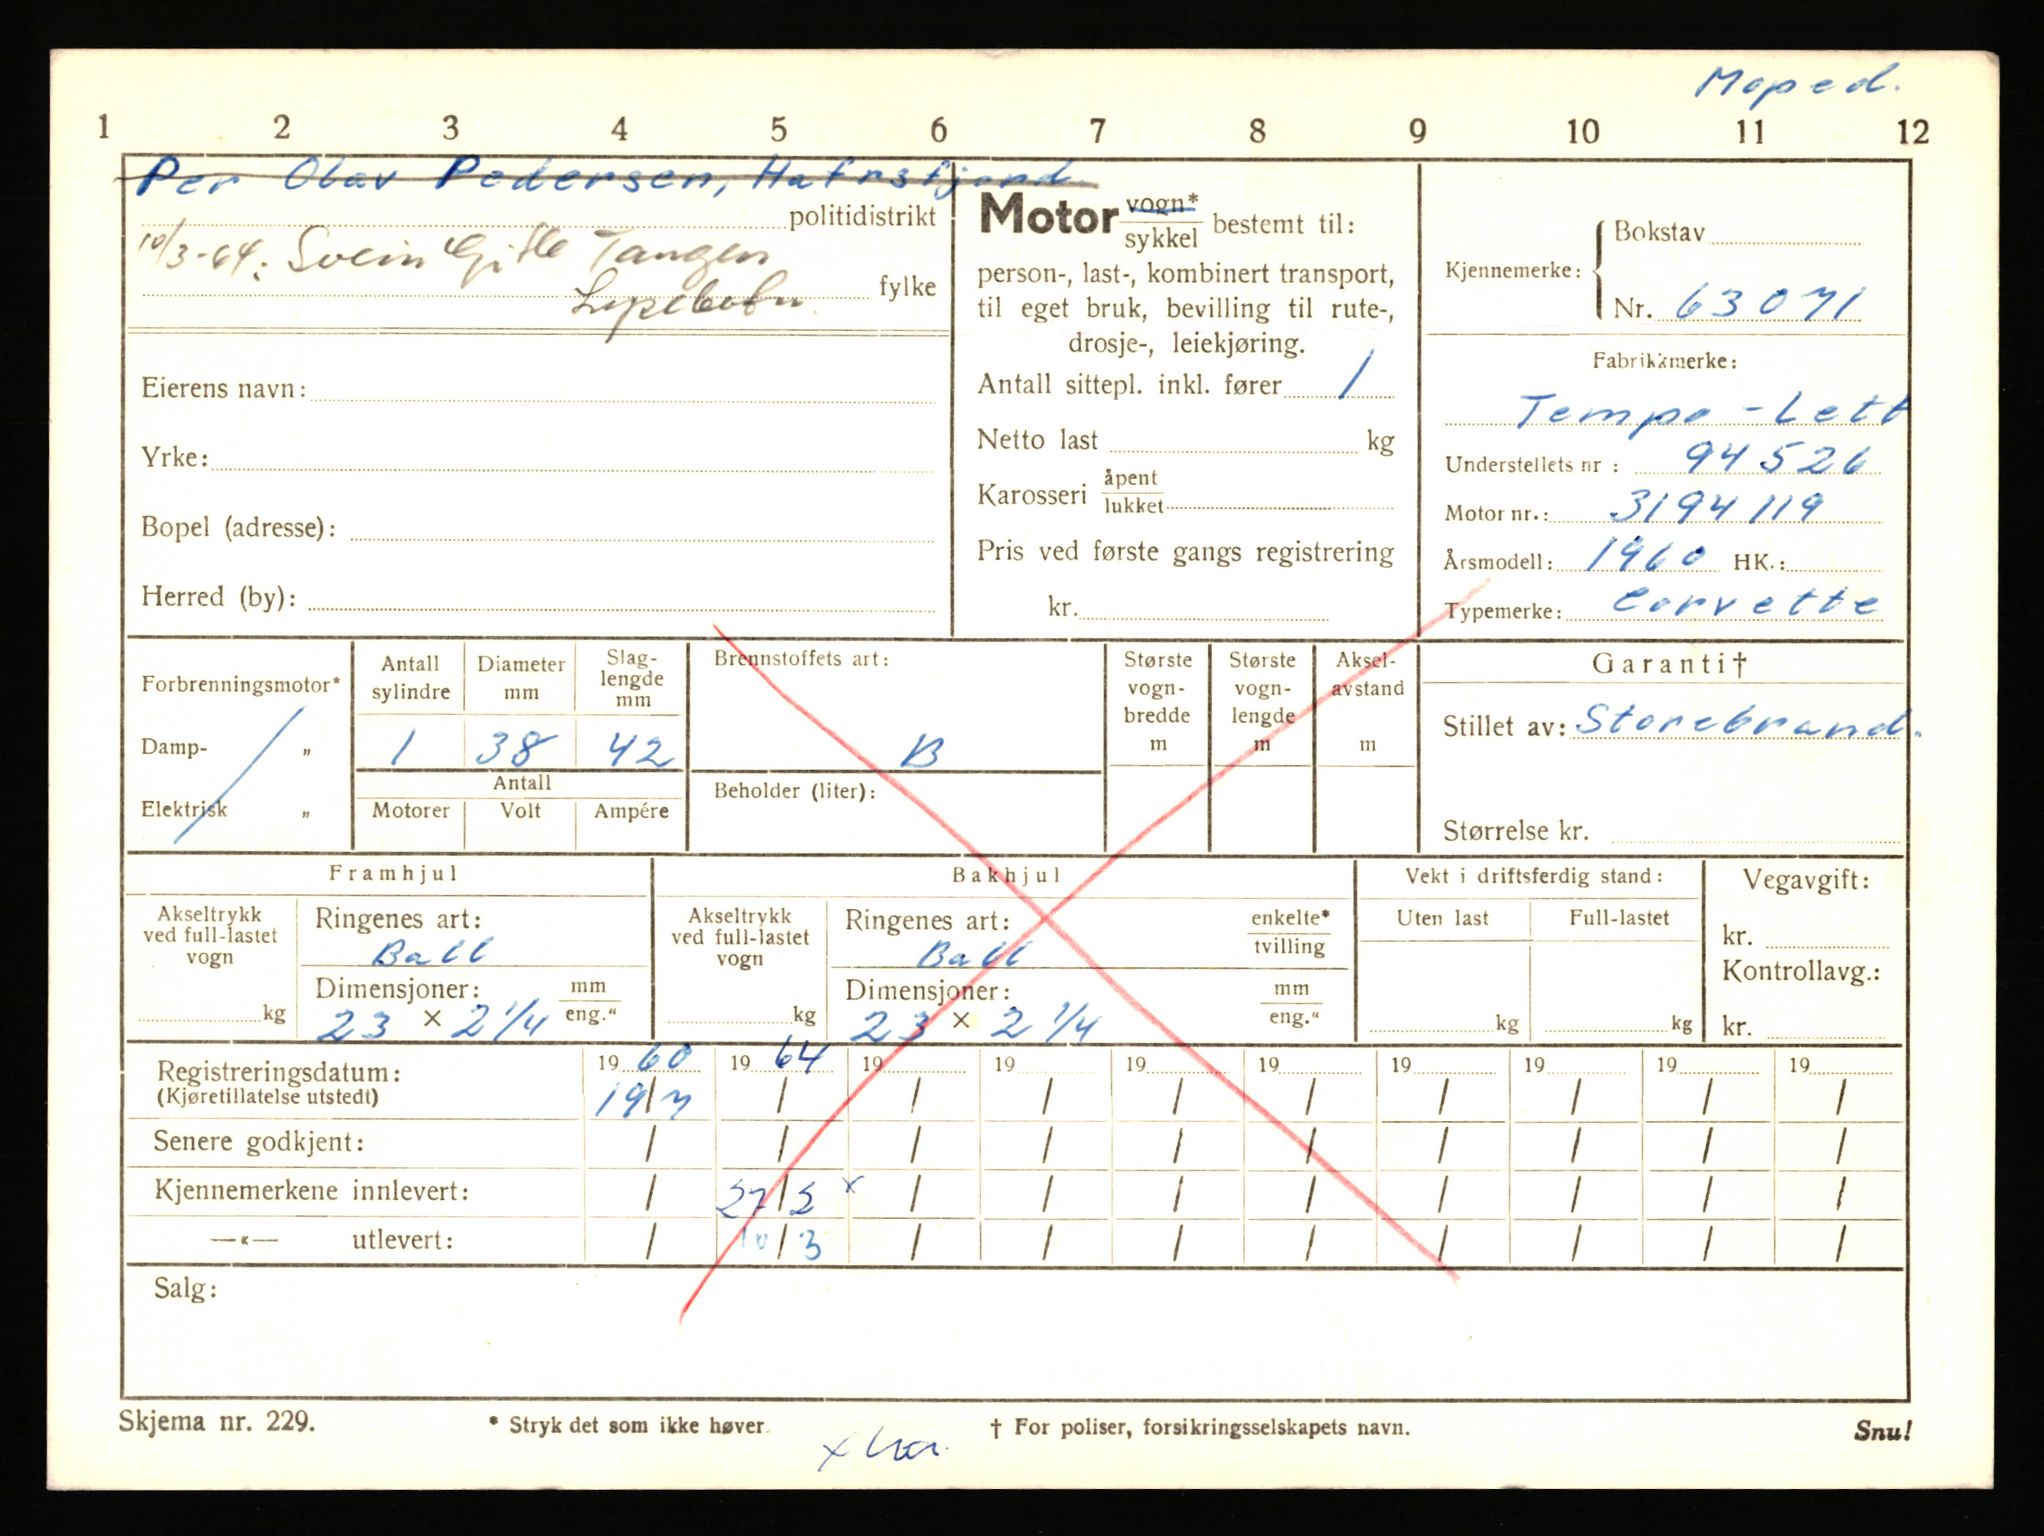 Moped.
1 2 3 4 5 6 7 8 9 10 11 12
Per Olav Pedersen, Hafrsfjord
politidistrikt
10/3-64: Svein Tangen
fylke
Eierens navn:
Yrke:
Bopel (adresse):
Herred (by):
Motor vogn* sykkel bestemt til:
person-, last-, kombinert transport,
til eget bruk, bevilling til rute-,
drosje-, leiekjøring.
Antall sittepl. inkl. fører 1
Netto last kg
Karosseri åpent lukket
Pris ved første gangs registrering
kr.
Kjennemerke: Bokstav
Nr. 63071
Fabrikkmerke:
Tempo-Lett
Understellets nr: 94526
Motor nr.: 3194119
Årsmodell: 1960 HK.:
Typemerke: Corvette
Forbrenningsmotor*
Damp- „
Elektrisk „
Antall sylindre Diameter mm Slag-lengde mm
1 38 42
Antall
Motorer Volt Ampére
Brennstoffets art:
B
Beholder (liter):
Største vogn-bredde m
Største vogn-lengde m
Aksel-avstand m
Garanti†
Stillet av: Storebrand.
Størrelse kr.
Framhjul
Akseltrykk ved full-lastet vogn
kg
Ringenes art:
Ball
Dimensjoner: mm eng.“
23 × 2 1/4
Bakhjul
Akseltrykk ved full-lastet vogn
kg
Ringenes art: enkelte* tvilling
Ball
Dimensjoner: mm eng.“
23 × 2 1/4
Vekt i driftsferdig stand:
Uten last Full-lastet
kg kg
Vegavgift:
kr.
Kontrollavg.:
kr.
Registreringsdatum: 1960 1964 19 19 19 19 19 19 19 19
(Kjøretillatelse utstedt) 19/7 / / / / / / / / /
Senere godkjent: / / / / / / / / / /
Kjennemerkene innlevert: / 27/2 x / / / / / / / /
—«— utlevert: / 10/3 / / / / / / / /
Salg:
Skjema nr. 229.
* Stryk det som ikke høver
† For poliser, forsikringsselskapets navn.
Snu!
x